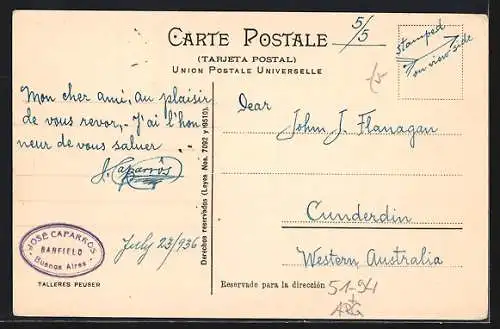 5/5
CARTE POSTALE
(TARJETA POSTAL)
UNION POSTALE UNIVERSELLE
stamped
on view side
Mon cher ami, au plaisir
de vous revor,- J'ai l'hon
neur de vous saluer
J. Caparrós
July 23/936
JOSE CAPARROS
BANFIELD
Buenos Aires
TALLERES PEUSER
Derechos reservados (Leyes Nos. 7092 y 9510).
Dear
John J. Flanagan
Cunderdin
Western Australia
Reservado para la dirección
51-94
ARG